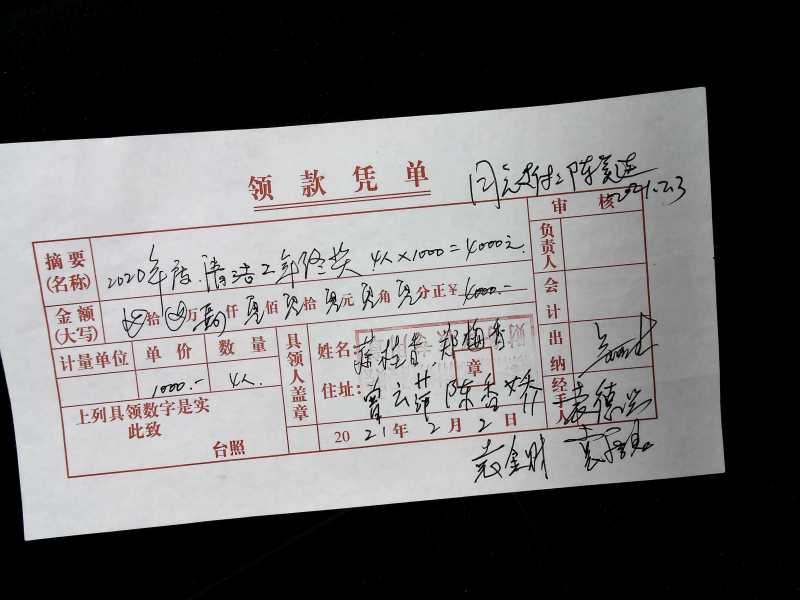 领款凭单
同意支付 陈 2021.2.3
审核
摘要(名称) 2020年度清洁工年终奖 4人×1000=4000元
负责人
金额(大写) 拾 万 肆仟 零佰 零拾 零元 零角 零分正 ¥ 4000.-
会计
计量单位 单价 数量
具领人盖章
姓名: 郑梅香
出纳
1000.- 4人.
住址: 曾云萍 陈香娇
章
经手人 袁德
上列具领数字是实
此致
台照
2021年2月2日
袁金财